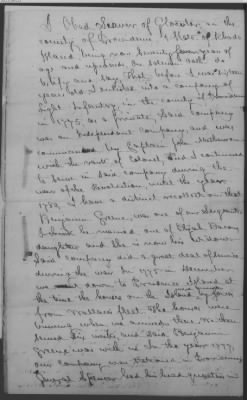 I Obed Seaver of Gloucester, in the
county of Providence & State of Rhode
Island being now seventy four years of
age and upwards on solemn oath do
testify and say, That before I was sixteen
years old I enlisted into a company of
Light Infantry, in the county of Providence
in 1775, as a private, said company
was an Independent company, and was
commanded by Captain John
with the rank of Colonel, and I continued
to serve in said company during the
war of the Revolution, until the year
1782, I have a distinct recollection that
Benjamin Greene, was one of our Sergeants
I think he married one of Elijah
daughters and she is now his Widow.
Said company did a great deal of service
during the war In 1775 in December
we went down to Providence Island at
the time the houses on the Island by fires
from Wallace fleet. The houses were
burning when we arrived there,
and said Benjamin
Greene was with us In the year 1777,
our company was stationed in
General Spencer had his head quarters in